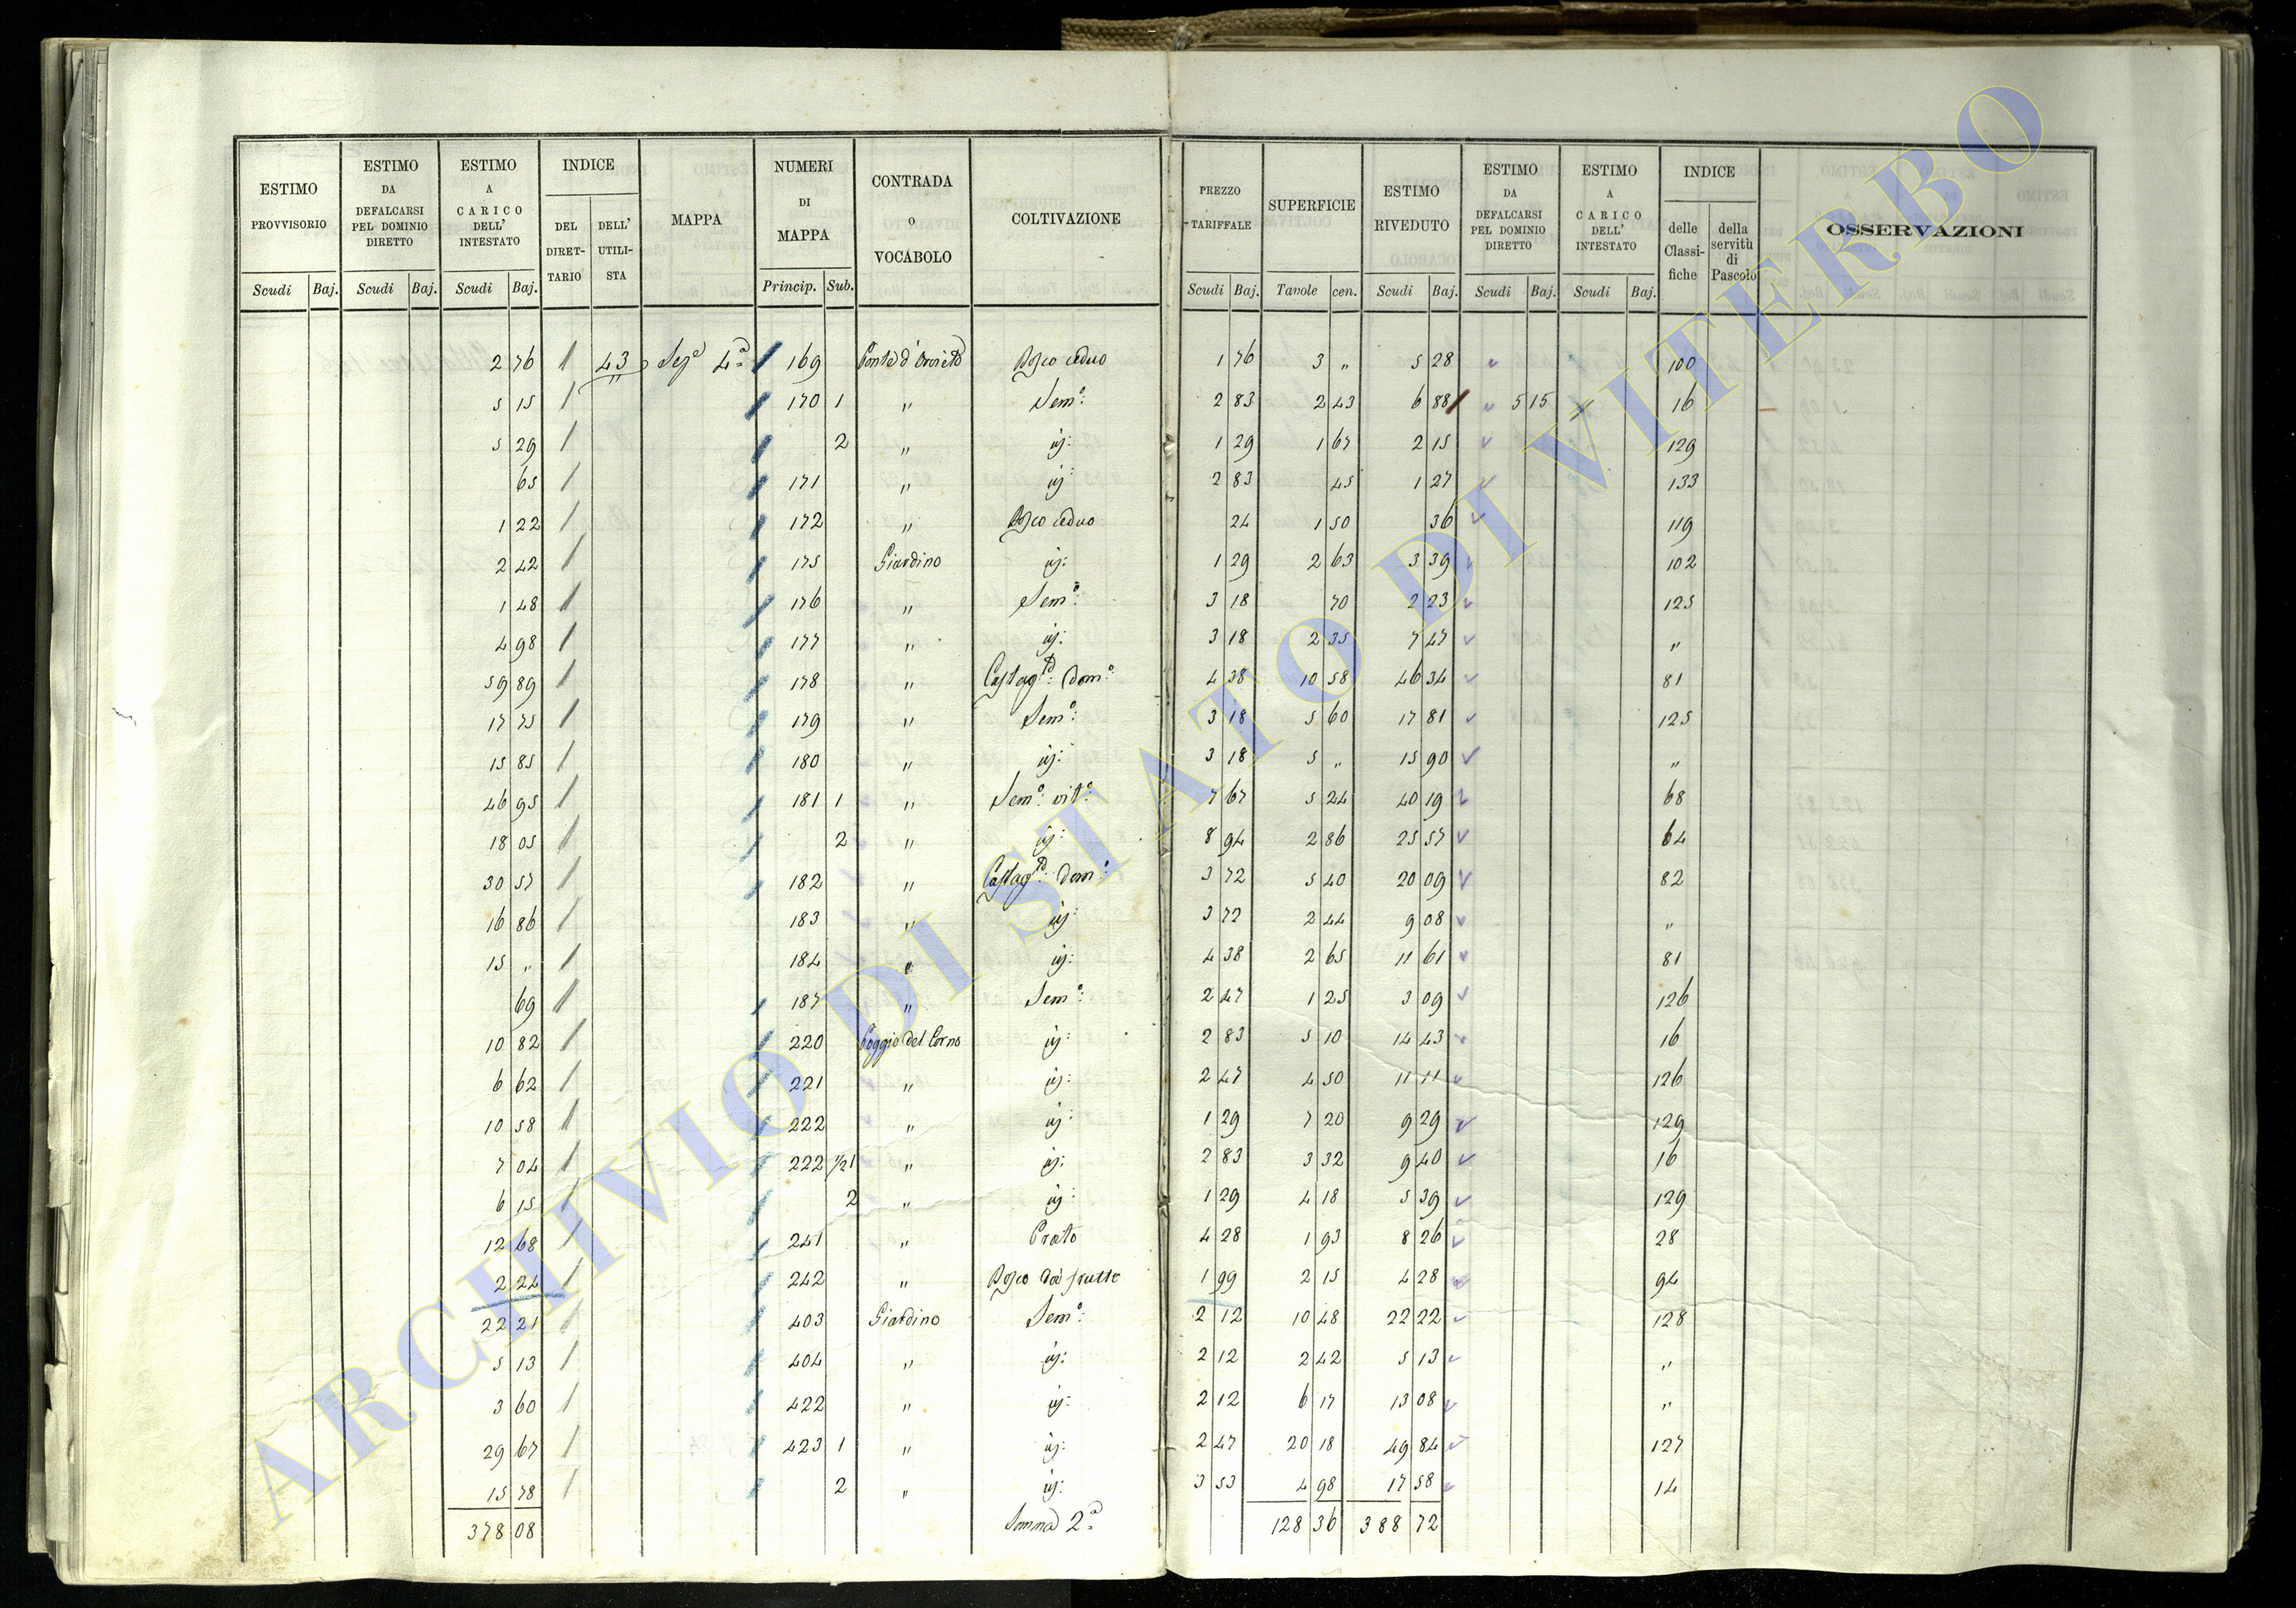 ESTIMO PROVVISORIO | ESTIMO DA DEFALCARSI PEL DOMINIO DIRETTO | ESTIMO A CARICO DELL' INTESTATO | INDICE | MAPPA | NUMERI DI MAPPA | CONTRADA o VOCABOLO | COLTIVAZIONE | PREZZO TARIFFALE | SUPERFICIE | ESTIMO RIVEDUTO | ESTIMO DA DEFALCARSI PEL DOMINIO DIRETTO | ESTIMO A CARICO DELL' INTESTATO | INDICE | OSSERVAZIONI
DEL DIRETTARIO | DELL' UTILISTA | delle Classifiche | della servitù di Pascolo
Scudi | Baj. | Scudi | Baj. | Scudi | Baj. | Princip. | Sub. | Scudi | Baj. | Tavole | cen. | Scudi | Baj. | Scudi | Baj. | Scudi | Baj.
2 76 | 43 | Sez.e 4.a | 169 | Ponte d' Orvieto | Bosco ceduo | 1 76 | 3 " | 5 28 | 100
5 15 | " | 170 1 | " | Sem.o: | 2 83 | 2 43 | 6 88 | 5 15 | 16
5 29 | 2 | " | id: | 1 29 | 1 67 | 2 15 | 129
65 | 171 | " | id: | 2 83 | 45 | 1 27 | 133
1 22 | 172 | " | Bosco ceduo | 24 | 1 50 | 36 | 119
2 42 | 175 | Giardino | id: | 1 29 | 2 63 | 3 39 | 102
1 48 | 176 | " | Sem.o: | 3 18 | 70 | 2 23 | 125
4 98 | 177 | " | id: | 3 18 | 2 35 | 7 47 | "
59 89 | 178 | " | Castag.to: dom.o | 4 38 | 10 58 | 46 34 | 81
17 75 | 179 | " | Sem.o: | 3 18 | 5 60 | 17 81 | 125
15 85 | 180 | " | id: | 3 18 | 5 " | 15 90 | "
46 95 | 181 1 | " | Sem.o: vit.o | 7 67 | 5 24 | 40 19 | 68
18 05 | 2 | " | id: | 8 94 | 2 86 | 25 57 | 64
30 57 | 182 | " | Castag.to: dom.o | 3 72 | 5 40 | 20 09 | 82
16 86 | 183 | " | id: | 3 72 | 2 44 | 9 08 | "
15 " | 184 | " | id: | 4 38 | 2 65 | 11 61 | 81
69 | 187 | " | Sem.o: | 2 47 | 1 25 | 3 09 | 126
10 82 | 220 | Poggio del Corno | id: | 2 83 | 5 10 | 14 43 | 16
6 62 | 221 | " | id: | 2 47 | 4 50 | 11 11 | 126
10 58 | 222 | " | id: | 1 29 | 7 20 | 9 29 | 129
7 04 | 222 1/2 1 | " | id: | 2 83 | 3 32 | 9 40 | 16
6 15 | 2 | " | id: | 1 29 | 4 18 | 5 39 | 129
12 68 | 241 | " | Prato | 4 28 | 1 93 | 8 26 | 28
2 24 | 242 | " | Bosco da frutto | 1 99 | 2 15 | 4 28 | 94
22 21 | 403 | Giardino | Sem.o: | 2 12 | 10 48 | 22 22 | 128
5 13 | 404 | " | id: | 2 12 | 2 42 | 5 13 | "
3 60 | 422 | " | id: | 2 12 | 6 17 | 13 08 | "
29 67 | 423 1 | " | id: | 2 47 | 20 18 | 49 84 | 127
15 78 | 2 | " | id: | 3 53 | 4 98 | 17 58 | 14
378 08 | Somma 2.a | 128 36 | 388 72
ARCHIVIO DI STATO DI VITERBO